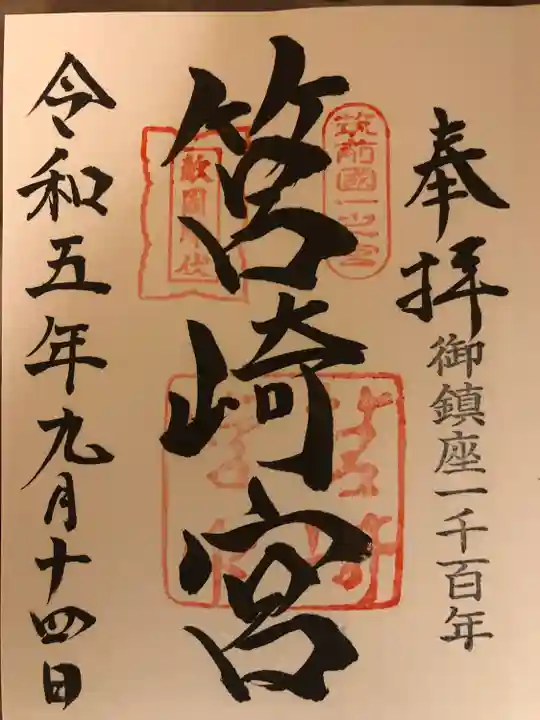 奉拝
御鎮座一千百年
筑前國一之宮
筥崎宮
敵国降伏
令和五年九月十四日